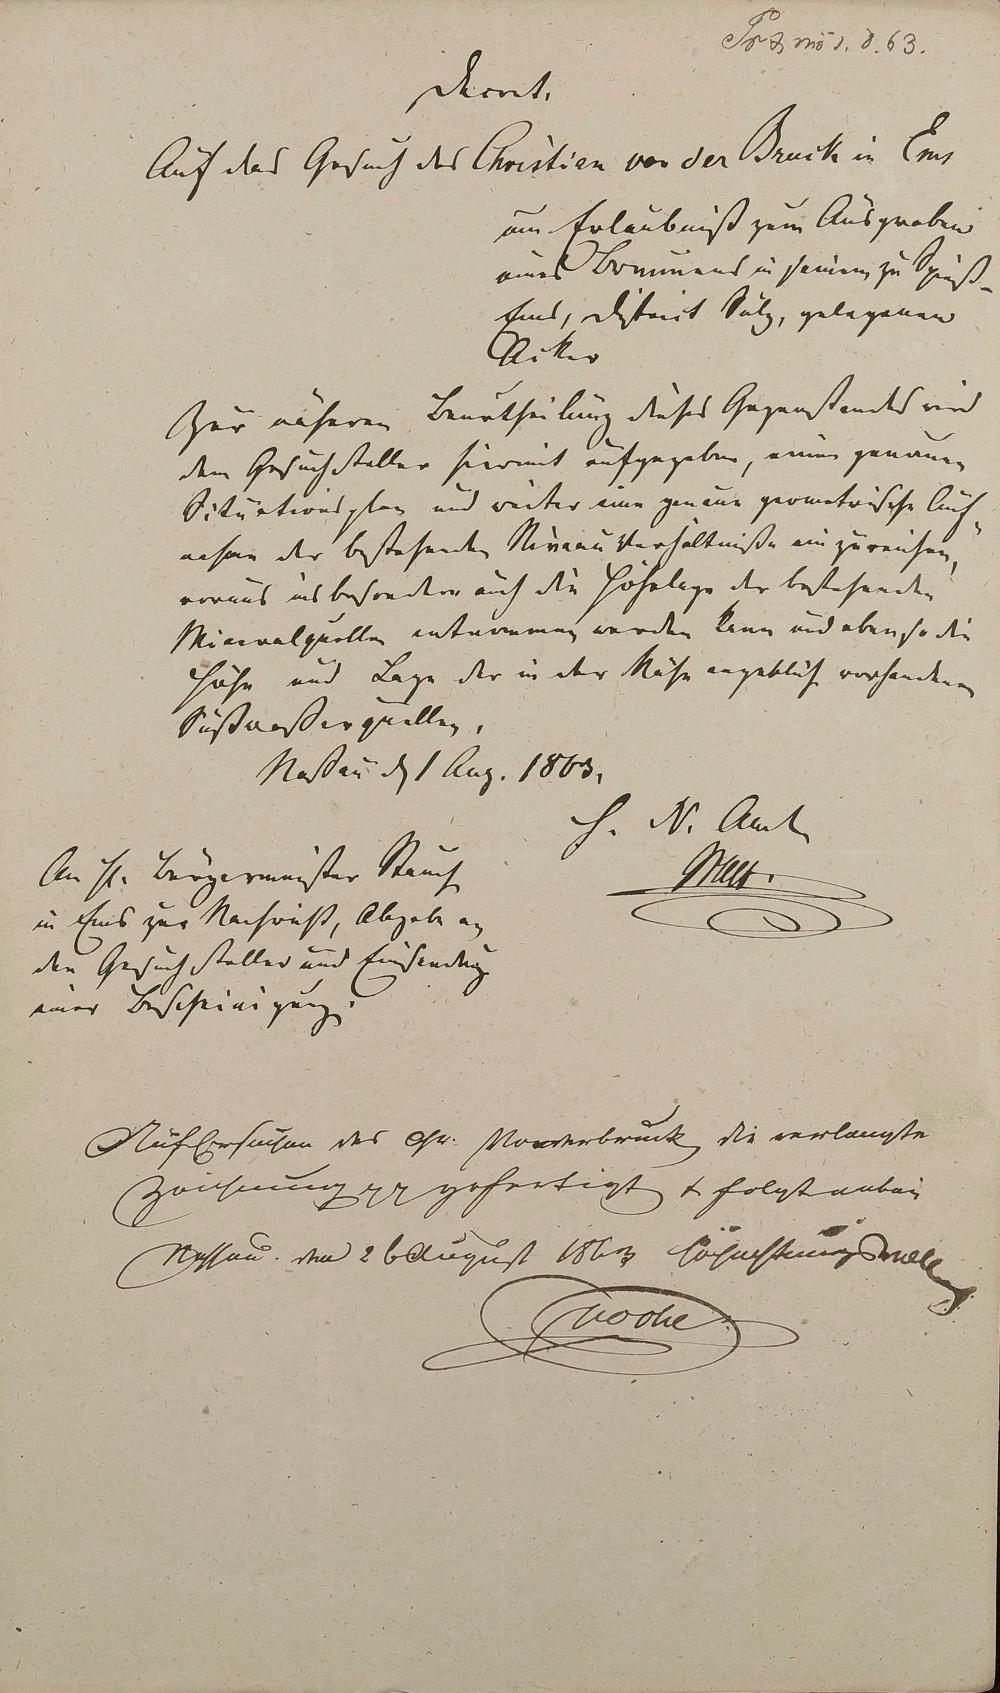 Decret.
Auf das Gesuch des Christian von der Bruck in Ems
um Erlaubniß zum Ausgraben
eines Brunnens in seinem zu Spieß-
Ems, District Sulz, gelegenen
Acker
Zur näheren Beurtheilung dieses Gegenstandes wird
dem Gesuchsteller hiermit aufgegeben, einen genauen
Situationsplan und weiter eine genaue geometrische Auf-
nahme der bestehenden Niveau Verhältniße einzureichen,
woraus insbesondere auch die Höhelage der bestehenden
Mineralquellen entnommen werden kann und ebenso die
Höhe und Lage der in der Nähe angeblich vorhandenen
Süßwasserquellen.
Naßau d 1 Aug. 1863.
H. N. Amt
An H. Bürgermeister Rauch
in Ems zur Nachricht, Abgabe an
den Gesuchsteller und Einsendung
einer Bescheinigung.
Auf Ersuchen des Chr. Vonderbruck die verlangte
Zeichnung gefertigt & folgt anbei
Nassau. den 26 August 1863